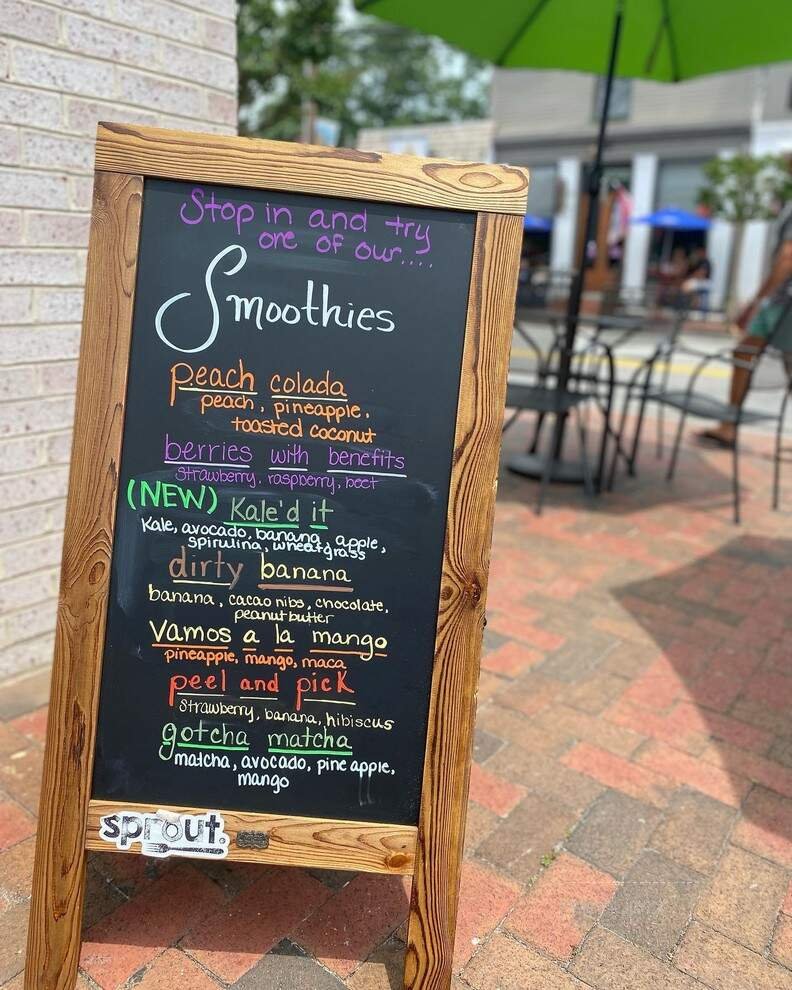 Stop in and try
one of our....
Smoothies
peach colada
peach, pineapple,
toasted coconut
berries with benefits
strawberry, raspberry, beet
(NEW) Kale'd it
Kale, avocado, banana, apple,
spirulina, wheatgrass
dirty banana
banana, cacao nibs, chocolate,
peanut butter
Vamos a la mango
pineapple, mango, maca
peel and pick
Strawberry, banana, hibiscus
gotcha matcha
matcha, avocado, pineapple,
mango
sprout.